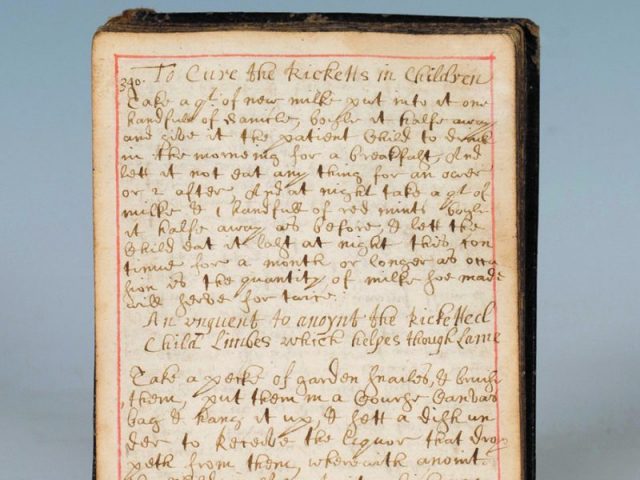 340. To Cure the Ricketts in Children
Take a qt. of new milke put into it one
handfull of Sanicle, boyle it halfe away
and give it the patient Child to drink
in the morneing for a breakfast, And
lett it not eat any thing for an ower
or 2 after And at night take a qt of
milke & 1 handfull of red mints boyle
it halfe away as before, & lett the
Child eat it last at night this con
tinue for a month or longer as occa
sion is the quantity of milke soe made
will serve for twice.
An unguent to anoynt the Ricketted
Child Limbes which helpes though Lame
Take a pecke of garden snailes, & bruse
them, put them in a Course Canvas
bag & hang it up, & sett a dish un
der to Receive the liquor that drop
peth from them, wherewith anoint